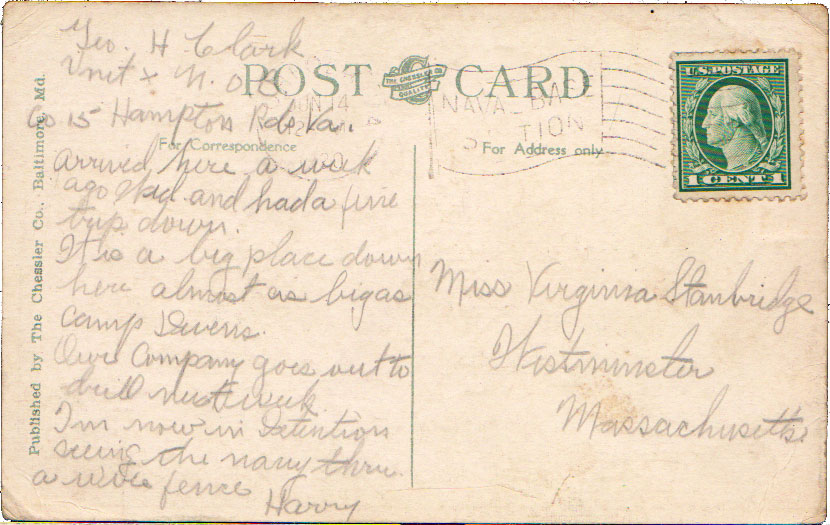 Geo. H Clark
Unit X N.O.B.
Co 15 Hampton Rds Va.
POST CARD
THE CHESSLER
QUALITY
JUN 14
NAVAL BASE
STATION
For Correspondence
For Address only
U.S. POSTAGE
1 CENT 1
Arrived here a week
ago and had a fine
trip down.
It is a big place down
here almost as big as
Camp Devens.
Our Company goes out to
drill next week.
I'm now in Detention
seeing the navy thru
a wire fence
Harry
Miss Virginia Stanbridge
Westminster
Massachusetts
Published by The Chessler Co., Baltimore, Md.